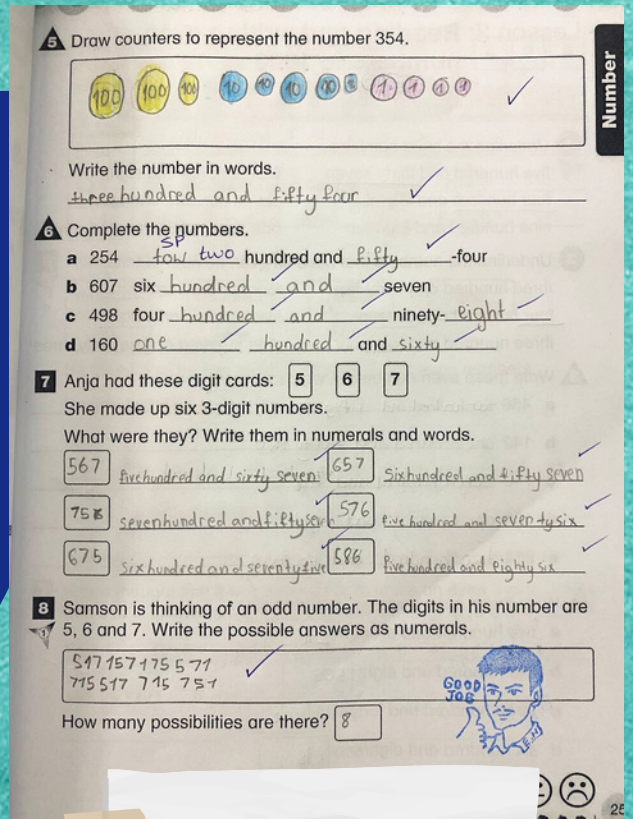 5 Draw counters to represent the number 354.
100 100 100 10 10 10 10 1 1 1 1
Number
Write the number in words.
three hundred and fifty four
6 Complete the numbers.
SP
a 254 tow two hundred and fifty -four
b 607 six hundred and seven
c 498 four hundred and ninety- eight
d 160 one hundred and sixty
7 Anja had these digit cards: 5 6 7
She made up six 3-digit numbers.
What were they? Write them in numerals and words.
567 five hundred and sixty seven 657 Six hundred and fifty seven
seven hundred and fifty 576 five hundred and seventy six
675 six hundred and seventy five 586 five hundred and eighty six
8 Samson is thinking of an odd number. The digits in his number are
5, 6 and 7. Write the possible answers as numerals.
517 157 175 571
715 517 715 751
GOOD
JOB
How many possibilities are there? 8
25